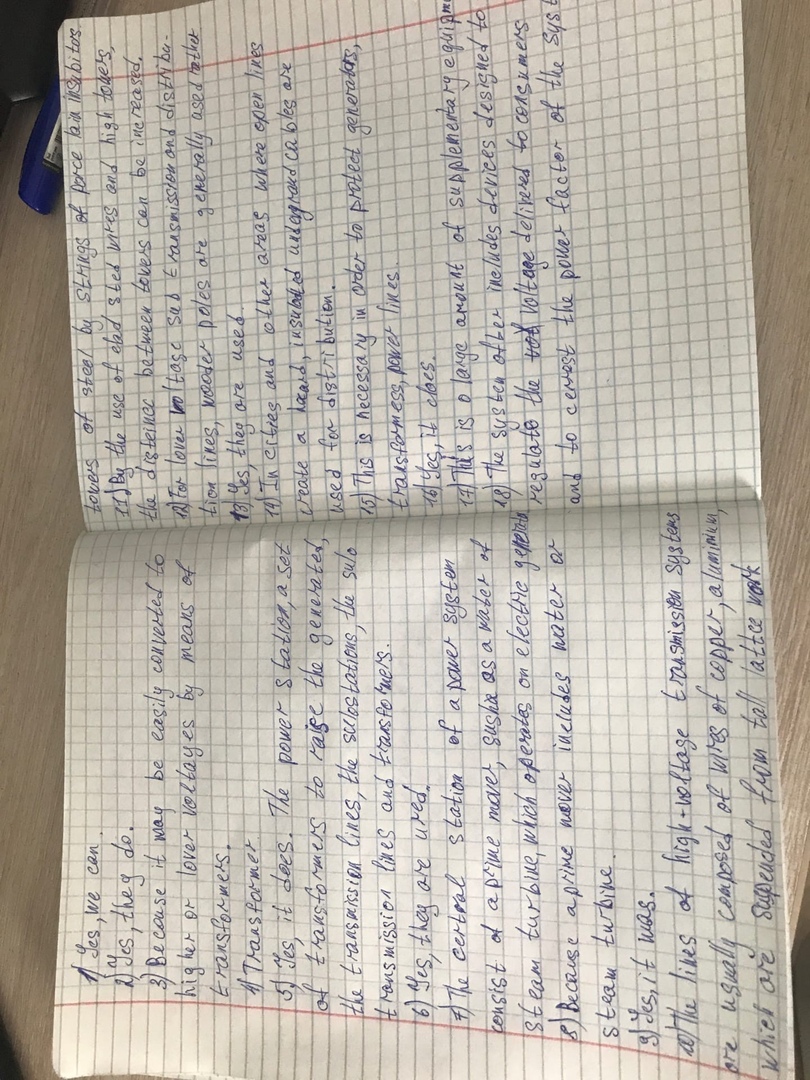 1) Yes, we can.
2) Yes, they do.
3) Because it may be easily converted to
higher or lover voltayes by means of
transformers.
4) Transformer
5) Yes, it does. The power station, a set
of transformers to raise the generated,
the transmission lines, the substations, the sub
transmission lines and transformers.
6) Yes, they are used.
7) The central station of a power system
consist of a prime mover, sushx as a water of
steam turbine, which operates on electric generato
8) Because a prime mover includes water or
steam turbine.
9) Yes, it was.
10) The lines of high-voltage transmission systems
are usually composed of wires of copper, aluminium,
which are suspended from tall lattice work
towers of steel by strings of porce lain insubitos.
11) By the use of clad sted wires and high towers,
the disteince between towers can be increased.
12) For lover voltage sub transmission and distribu-
tion lines, wooder poles are generally used rather
13) Yes, they are used.
14) In cities and other areas where open lines
create a hazard, insulated undergraund cables are
used for distribution.
15) This is necessary in order to protect generators,
transformess, power lines.
16) Yes, it does.
17) This is a large amount of supplementary equipm
18) The system often includes devices designed to
regulate the voltage delivered to consumers
and to correst the power factor of the syst